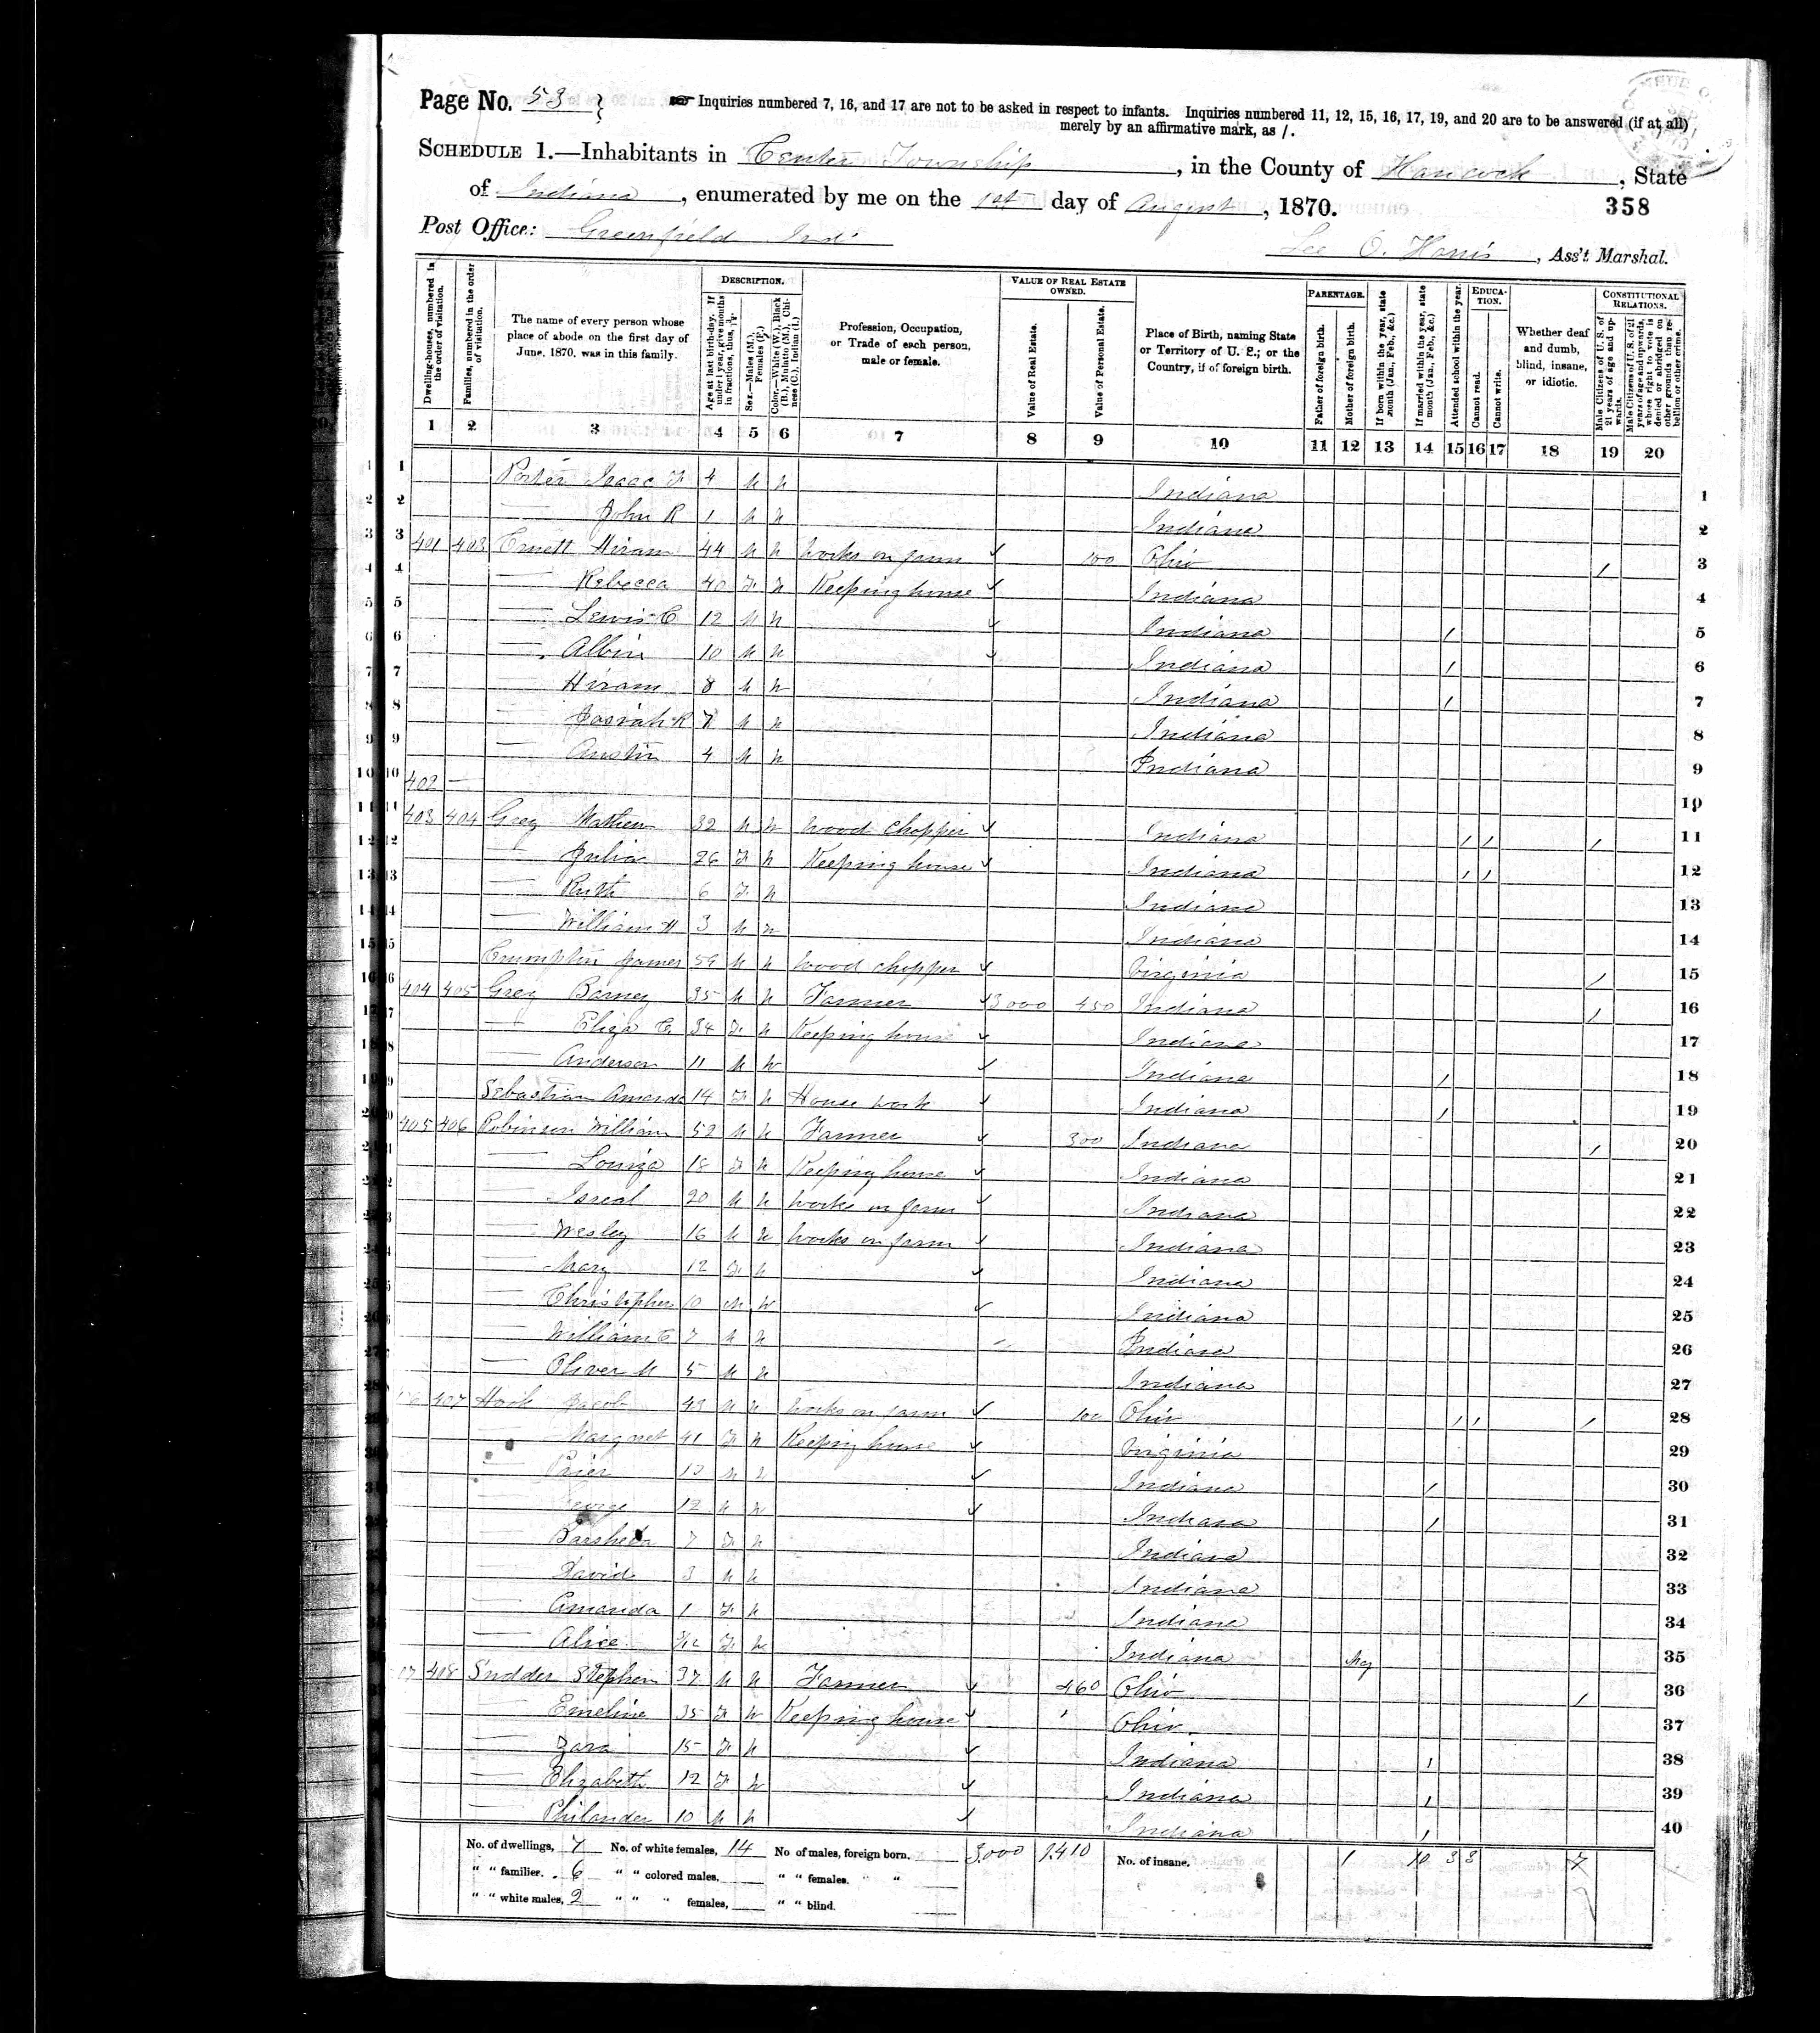 Page No. 53
Inquiries numbered 7, 16, and 17 are not to be asked in respect to infants. Inquiries numbered 11, 12, 15, 16, 17, 19, and 20 are to be answered (if at all)
merely by an affirmative mark, as /.
SCHEDULE 1.—Inhabitants in Center Township, in the County of Hancock, State
of Indiana, enumerated by me on the 1st day of August, 1870. 358
Post Office: Greenfield Ind
Lee O. Harris, Ass't Marshal.
Dwelling-houses, numbered in the order of visitation.
Families, numbered in the order of visitation.
The name of every person whose place of abode on the first day of June, 1870, was in this family.
DESCRIPTION.
Age at last birth-day. If under 1 year, give months in fractions, thus,
Sex.—Males (M.), Females (F.)
Color.—White (W.), Black (B.), Mulatto (M.), Chinese (C.), Indian (I.)
Profession, Occupation, or Trade of each person, male or female.
VALUE OF REAL ESTATE OWNED.
Value of Real Estate.
Value of Personal Estate.
Place of Birth, naming State or Territory of U. S.; or the Country, if of foreign birth.
PARENTAGE.
Father of foreign birth.
Mother of foreign birth.
If born within the year, state month (Jan., Feb., &c.)
If married within the year, state month (Jan., Feb., &c.)
Attended school within the year.
EDUCATION.
Cannot read.
Cannot write.
Whether deaf and dumb, blind, insane, or idiotic.
CONSTITUTIONAL RELATIONS.
Male Citizens of U. S. of 21 years of age and upwards.
Male Citizens of U. S. of 21 years of age and upwards, whose right to vote is denied or abridged on other grounds than rebellion or other crime.
1 2 3 4 5 6 7 8 9 10 11 12 13 14 15 16 17 18 19 20
1 Porter Isaac F 4 M W Indiana 1
2 — John R 1 M W Indiana 2
3 401 403 Hiram 44 M W Works on farm 100 Ohio / 3
4 — Rebecca 40 F W Keeping house Indiana 4
5 — Lewis C 12 M W Indiana / 5
6 — Albin 10 M W Indiana / 6
7 Hiram 8 M W Indiana / 7
8 — Josiah R 7 M W Indiana 8
9 — Austin 4 M W Indiana 9
10 402 — 10
11 403 404 Grey Mathew 32 M W Wood chopper Indiana / / / 11
12 — Julia 26 F W Keeping house Indiana / / 12
13 — Ruth 6 F W Indiana 13
14 — William H 3 M W Indiana 14
15 Crumpton James 56 M W Wood chopper Virginia / 15
16 404 405 Grey Barney 35 M W Farmer 3000 450 Indiana / 16
17 — Eliza C 34 F W Keeping house Indiana 17
18 — Anderson 11 M W Indiana / 18
19 Sebastian Amanda 14 F W House work Indiana / 19
20 405 406 Robinson William 52 M W Farmer 300 Indiana / 20
21 — Louiza 18 F W Keeping house Indiana 21
22 — Isreal 20 M W Works on farm Indiana 22
23 — Wesley 16 M W Works on farm Indiana 23
24 — Mary 12 F W Indiana 24
25 — Christopher 10 M W Indiana 25
26 — William C 7 M W Indiana 26
27 — Oliver M 5 M W Indiana 27
28 407 Hook Jacob 43 M W Works on farm 100 Ohio / / / 28
29 Margaret 41 F W Keeping house Virginia 29
30 — Prier M W Indiana / 30
31 — George 12 M W Indiana / 31
— Barsheba 7 F W Indiana 32
— David 3 M W Indiana 33
— Amanda 1 F W Indiana 34
— Alice F W Indiana May 35
408 Stephen 37 M W Farmer 460 Ohio / 36
— Emeline 35 F W Keeping house Ohio 37
— Zara 15 F W Indiana / 38
— Elizabeth 12 F W Indiana / 39
— Philander 10 M W Indiana / 40
No. of dwellings, 7 No. of white females, 14 No of males, foreign born. 3,000 1,410 No. of insane. 1 10 3 3 7
" " families. 6 " " colored males, " " females. " "
" " white males, 2 " " " females, " " blind.